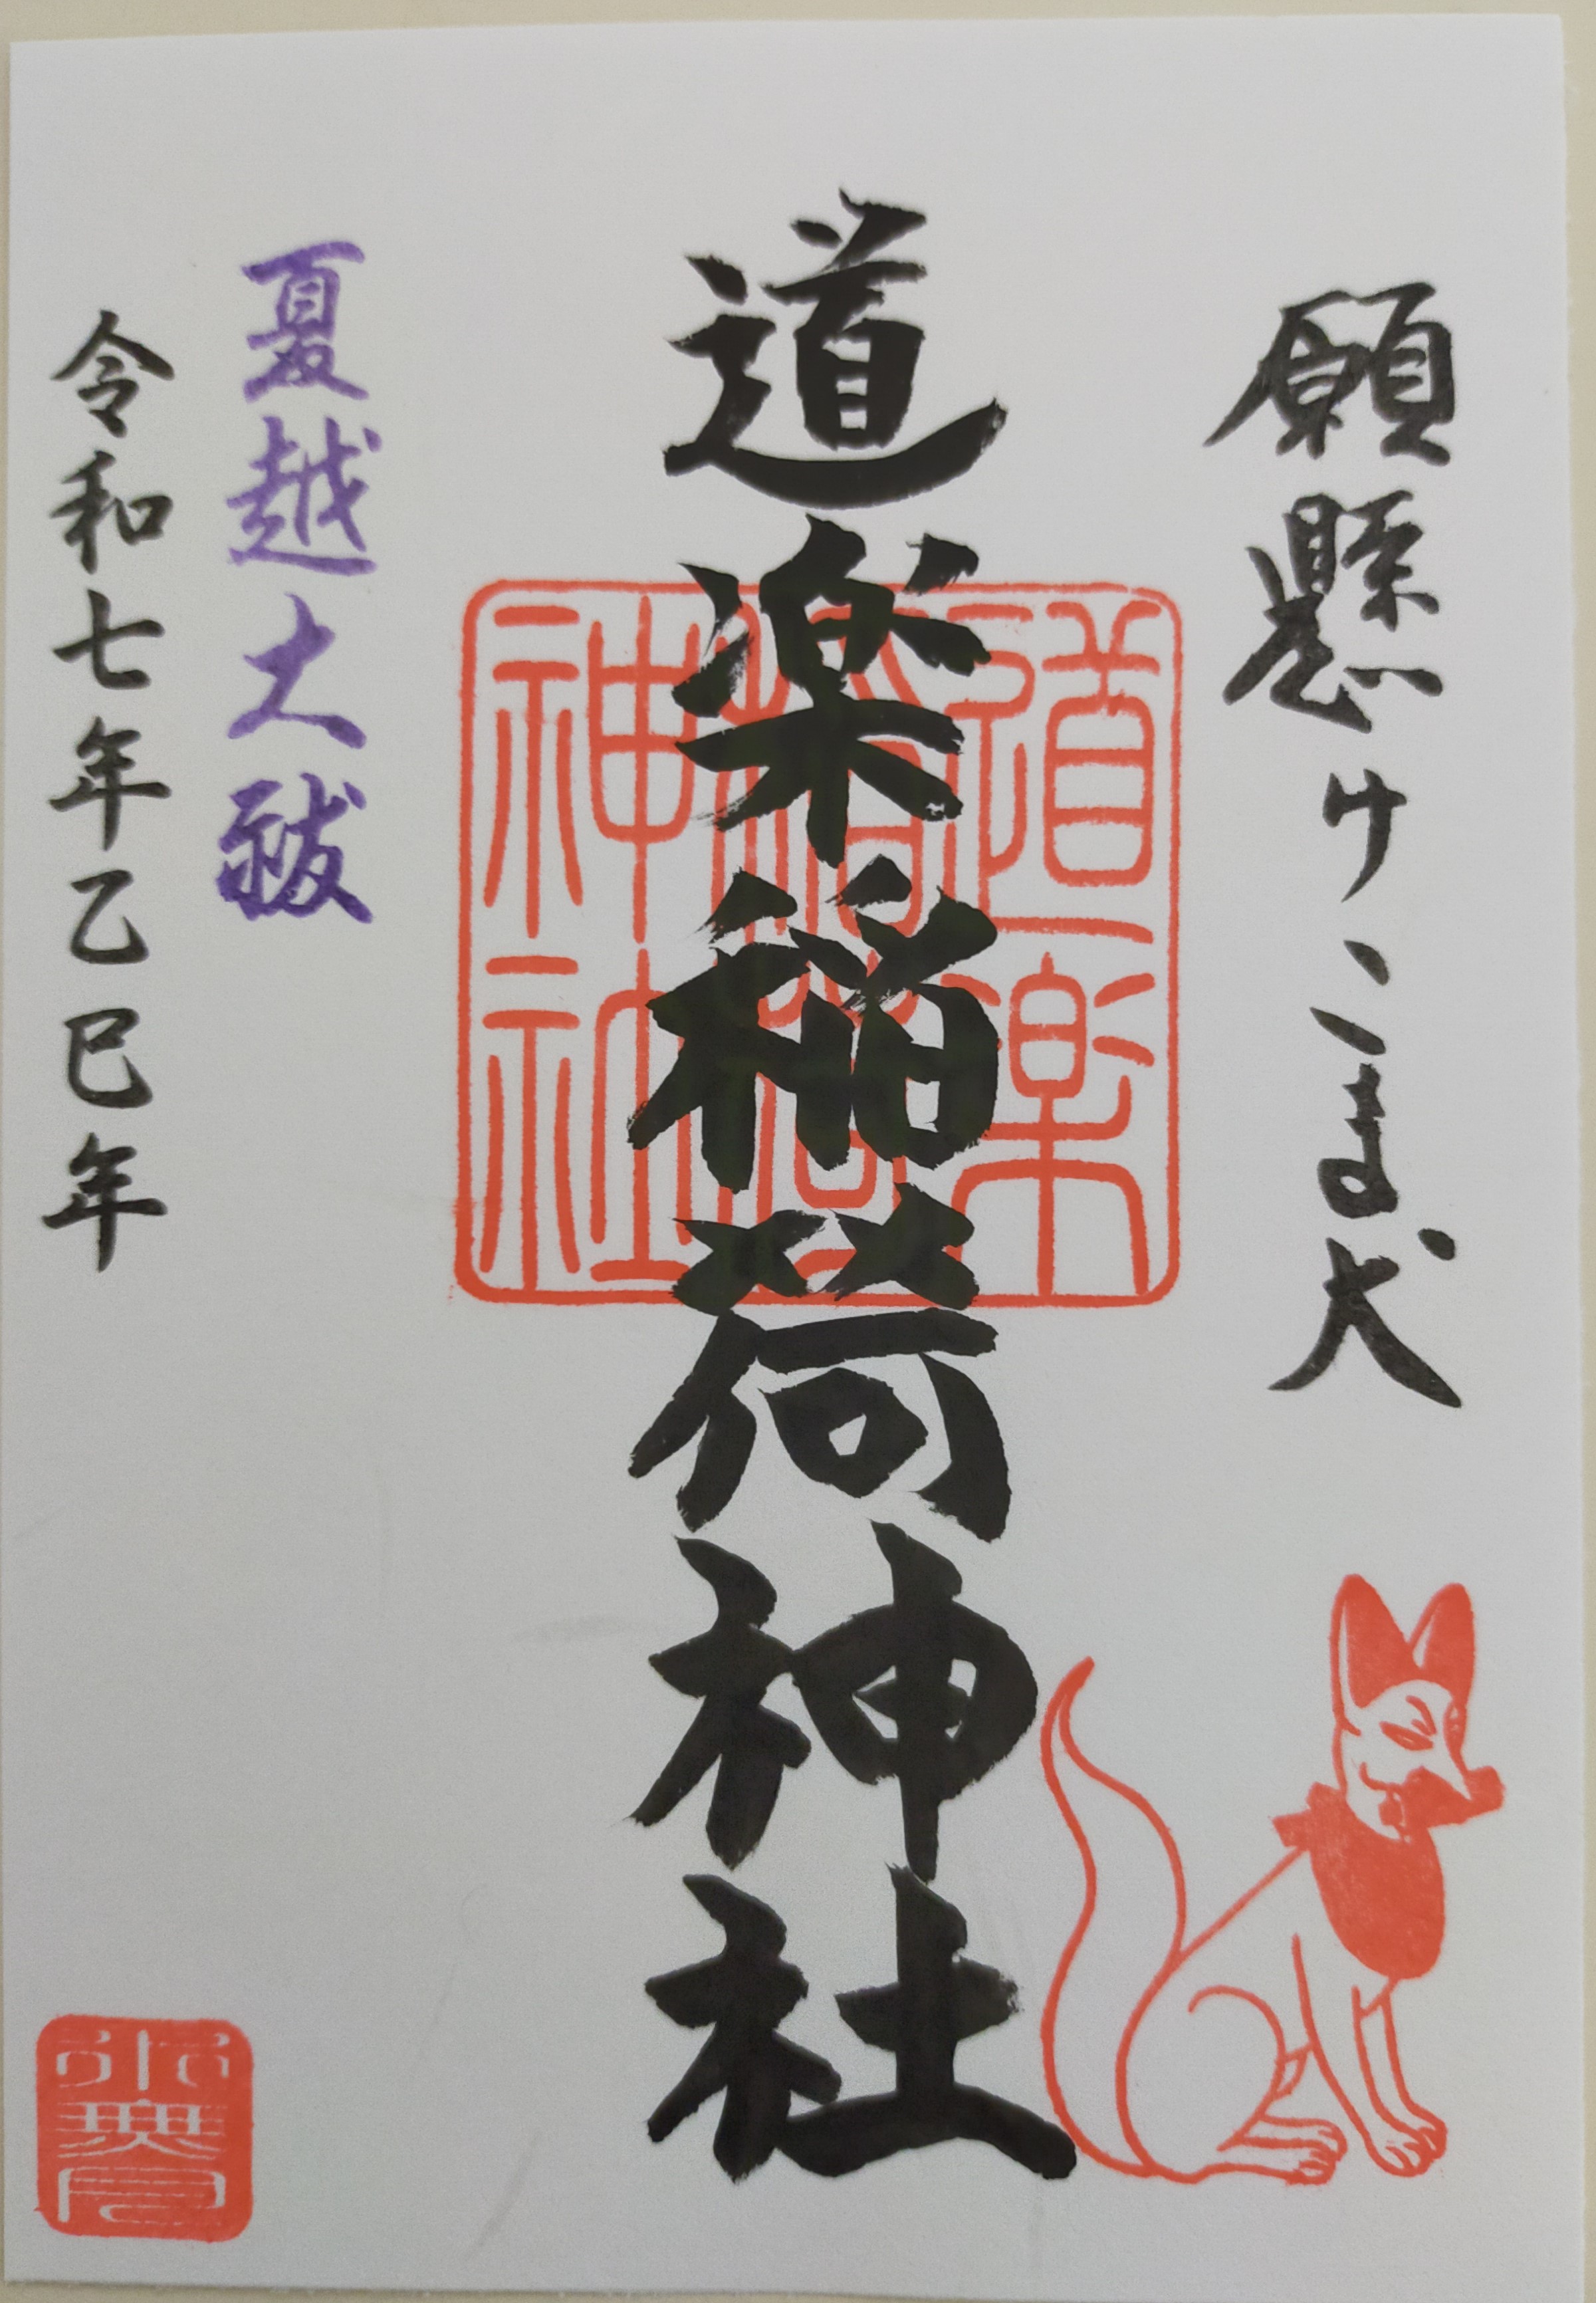 願懸けこま犬
道楽稲荷神社
道楽
稲荷
神社
夏越大祓
令和七年乙巳年
水無月